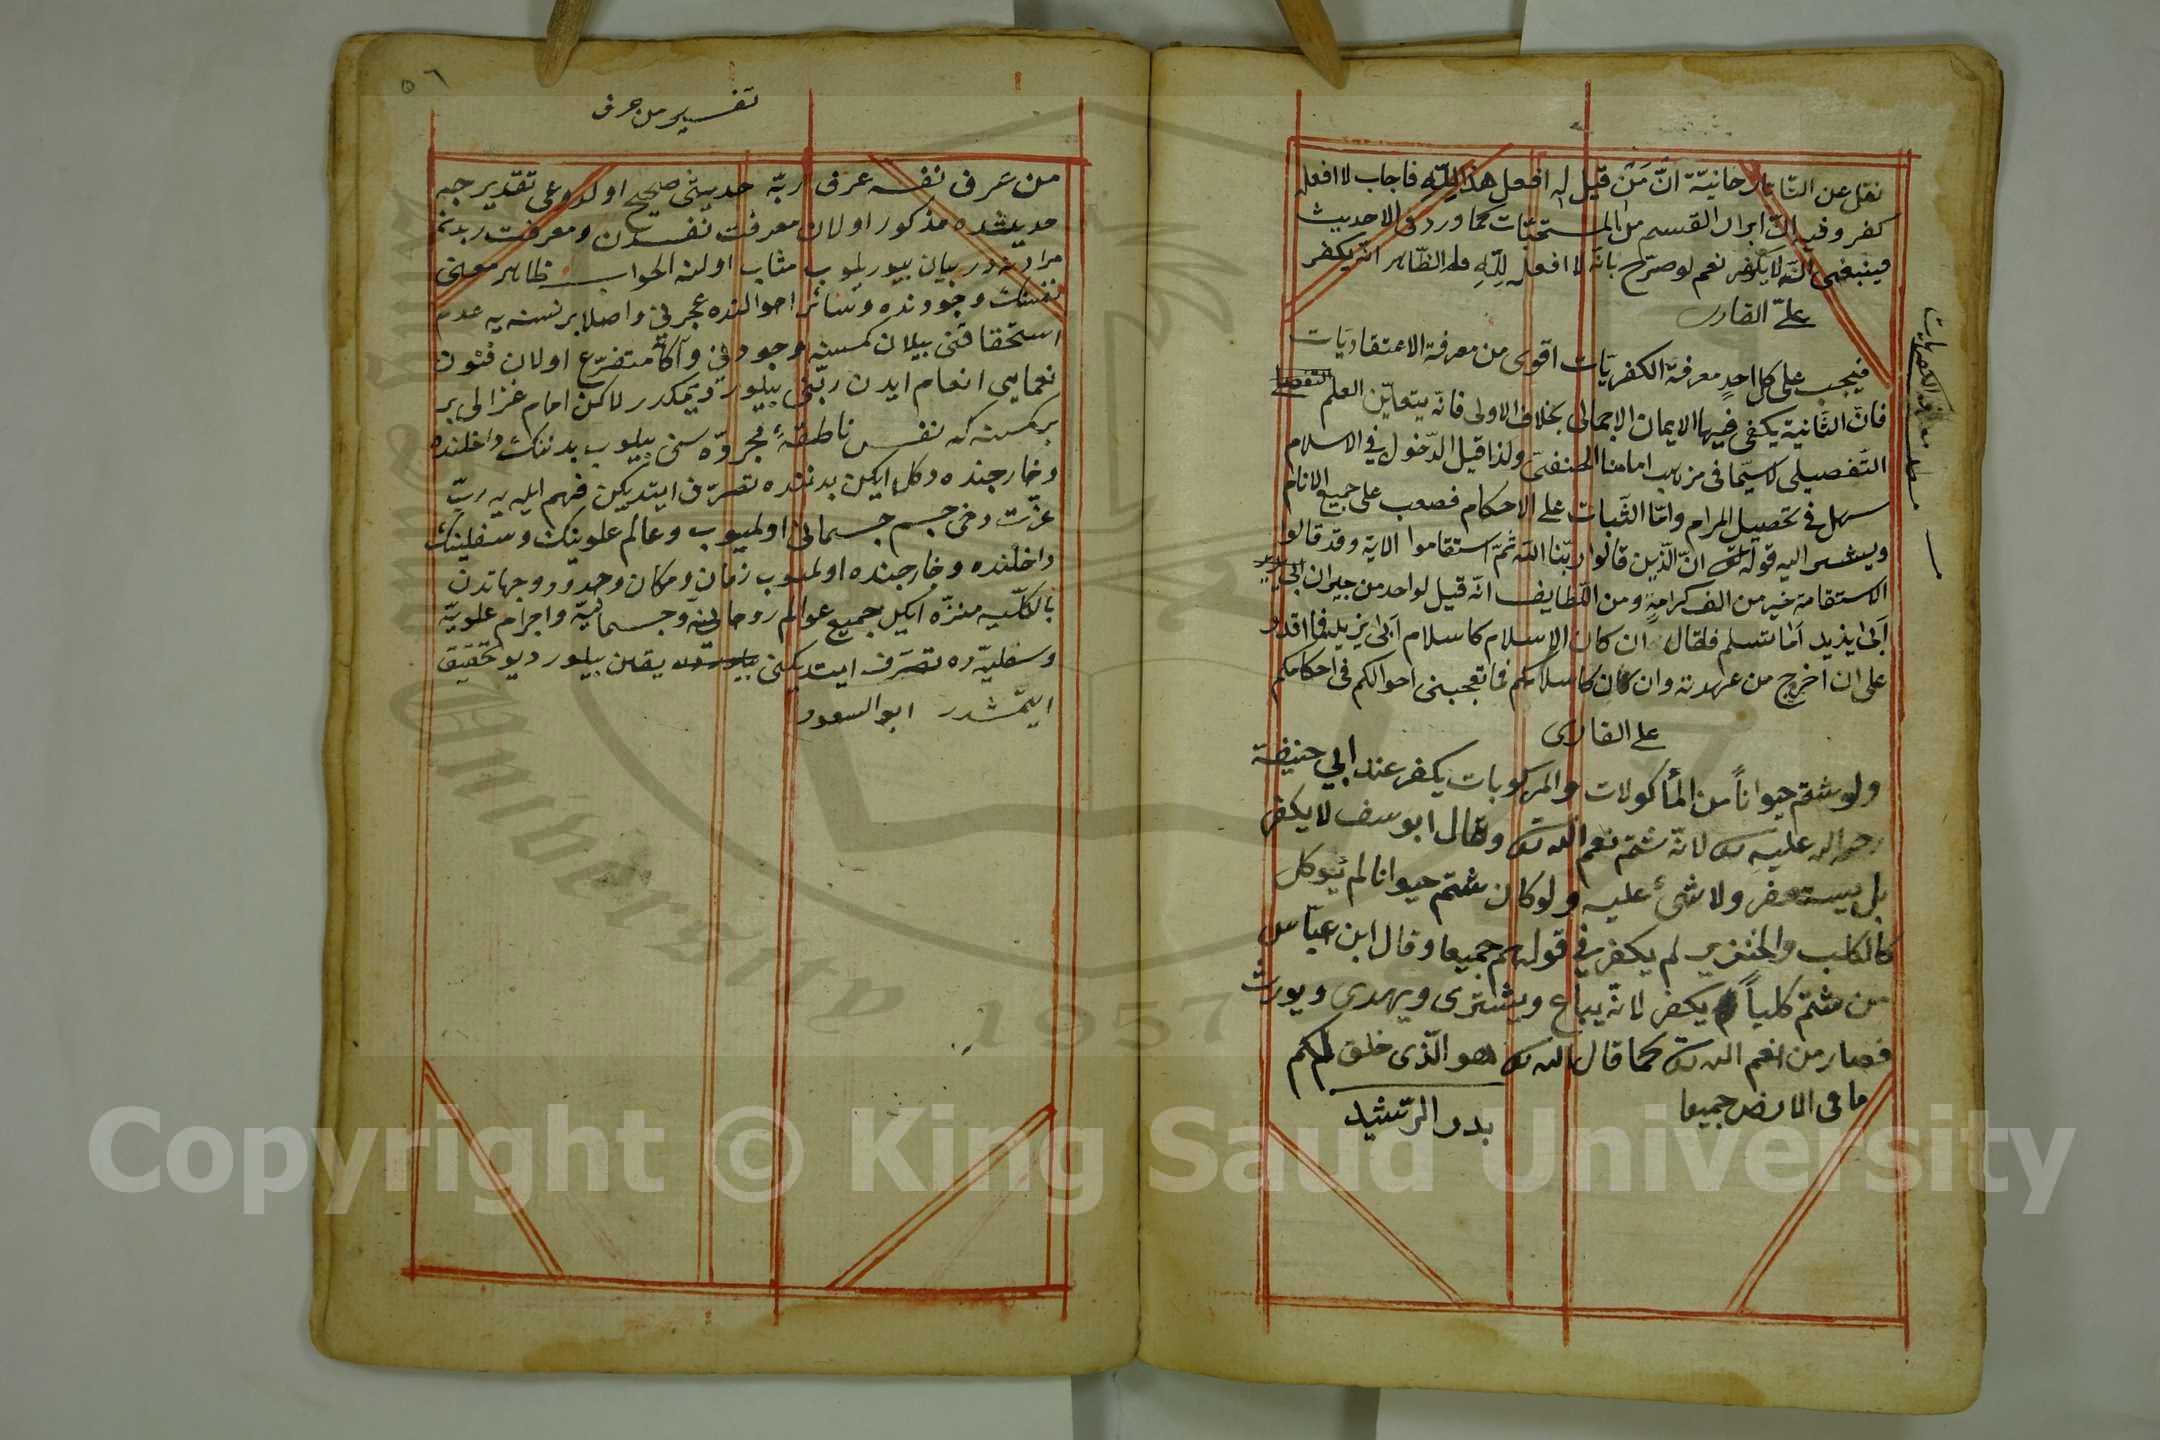 نقل عن التاتارخانية ان من قيل له افعل هذا لله فاجاب لا افعله
كفر وفيه ان ابرار القسم من المستحبات كما ورد في الاحديث
فينبغي انه لا يكفر نعم لو صرح بانه لا افعله لله فالظاهر انه يكفر
على القارى
فيجب على كل احد معرفة الكفريات اقوى من معرفة الاعتقاديات
فان الثانية يكفى فيها الايمان الاجمالى بخلاف الاولى فانه يتعين العلم التفصيلى
التفصيلى لاسيما فى مذهب امامنا الحنفى ولذا قيل الدخول في الاسلام
سهل في تحصيل المرام واما الثبات على الاحكام فصعب على جميع الانام
ويشير اليه قوله تعالى ان الذين قالوا ربنا الله ثم استقاموا الاية وقد قالوا
الاستقامة خير من الف كرامة ومن اللطايف انه قيل لواحد من جيران
ابى يزيد اما تسلم فقال ان كان الاسلام كاسلام ابى يزيد فما اقدر
على ان اخرج من عهدته وان كان كاسلامكم فما تعجبنى احوالكم فى احكامكم
على القارى
ولو شتم حيوانا من المأكولات والمركوبات يكفر عند ابي حنيفة
رحمة الله عليه لانه شتم نعم الله تعالى وقال ابو سف لا يكفر
بل يستغفر ولا شئ عليه ولو كان شتم حيوانا لم يؤكل
كالكلب والخنزير لم يكفر في قولهم جميعا وقال ابن عباس
من شتم كلبا يكفر لانه يباع ويشترى ويهدى ويورث
فصار من انعم الله تعالى كما قال الله تعالى هو الذى خلق لكم
ما فى الارض جميعا
بدر الرشيد
معرفة الكفريات
٥٦
تفسير من عرف
من عرف نفسه عرف ربه حديثى صحيح اولدوغى تقديرجه
حديثده مذكور اولان معرفت نفسدن ومعرفت ربدن
مراد نه در بيان بيوريلوب مثاب اولنه الجواب ظاهر معنى
نفسنك وجودنده وسائر احوالنده عجزنى واصلا برنسنه يه عدم
استحقاقنى بيلان كمسنه وجودنى واكا متفرع اولان فنون
نعمايى انعام ايدن ربنى بيلور ديمكدر لاكن امام غزالى بر
بر كمسنه كه نفس ناطقه مجرده سنى بيلوب بدننك داخلنده
وخارجنده دكل ايكن بدننده تصرف ايتديكين فهم ايليه رب
عزت دخى جسم جسمانى اولميوب وعالم علوينك وسفلينك
داخلنده وخارجنده اولميوب زمان ومكان وحدود وجهاتدن
بالكليه منزه ايكن جميع عوالم روحانيه وجسمانيه واجرام علويه
وسفليه ده تصرف ايتديكنى يقين بيلور ديو تحقيق
ايتمشدر ابو السعود
Copyright © King Saud University
University
1957